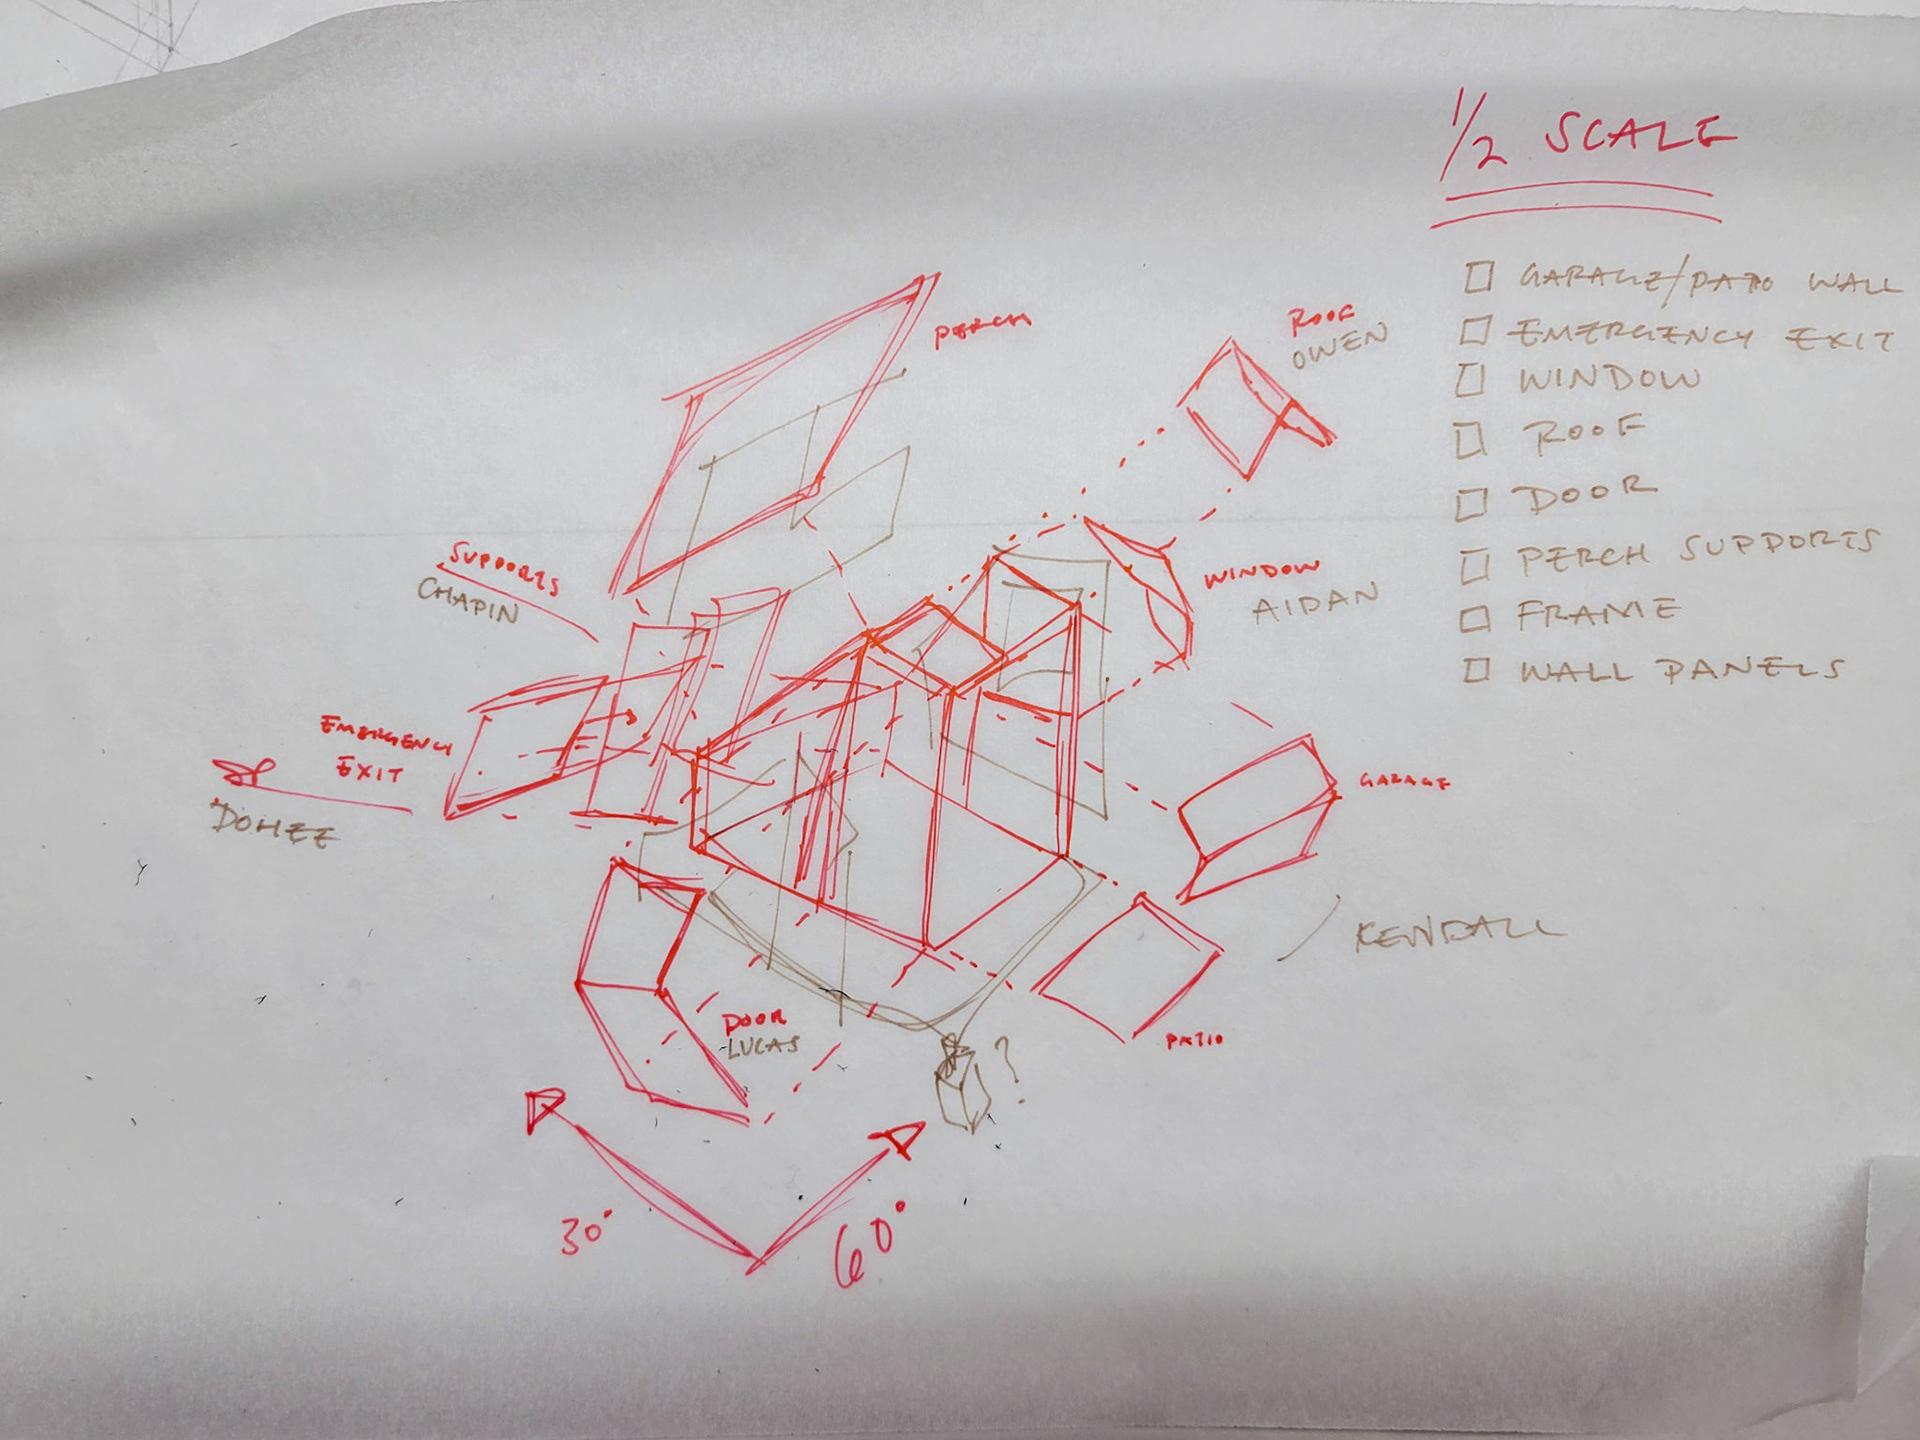 1/2 SCALE
□ GARAGE/PATIO WALL
□ EMERGENCY EXIT
□ WINDOW
□ ROOF
□ DOOR
□ PERCH SUPPORTS
□ FRAME
□ WALL PANELS
PERCH
ROOF
OWEN
SUPPORTS
CHAPIN
WINDOW
AIDAN
EMERGENCY
EXIT
DOHEE
GARAGE
KENDALL
DOOR
-LUCAS
PATIO
?
30°
60°